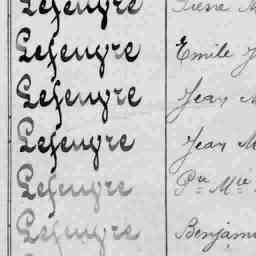 Lefeuvre
Lefeuvre Emile
Lefeuvre Jean
Lefeuvre Jean M
Lefeuvre Pre Mie
Lefeuvre Benjami